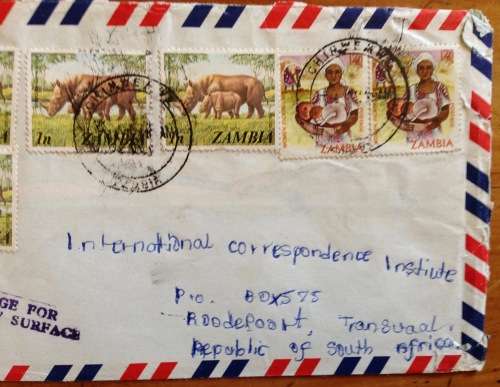 1n
ZAMBIA
ZAMBIA
ZAMBIA
ZAMBIA
ZAMBIA
International correspondence Institute
P.O. BOX 575
Roodepoort, Transvaal,
Republic of South Africa
GE FOR
SURFACE